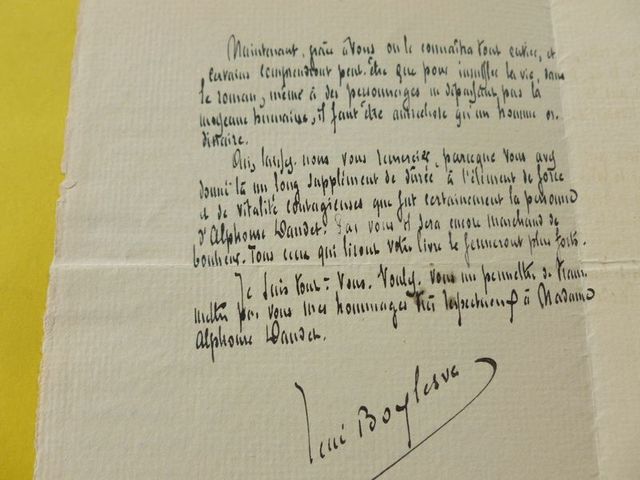 Maintenant, grâce à vous on le connaîtra tout entier, et
certains comprendront peut-être que pour insuffler la vie, dans
le roman, même à des personnages ne dépassant pas la
moyenne humaine, il faut être autre chose qu'un homme or-
dinaire.
Oui, laissez-nous vous remercier, parceque vous avez
donné là un long supplément de durée à l'élément de force
et de vitalité contagieuses que fut certainement la personne
d'Alphonse Daudet. Par vous il sera encore marchand de
bonheur. Tous ceux qui liront votre livre le fermeront plus forts.
Je suis tout à vous. Voulez-vous me permettre de trans-
mettre par vous mes hommages très respectueux à Madame
Alphonse Daudet.
René Boylesve